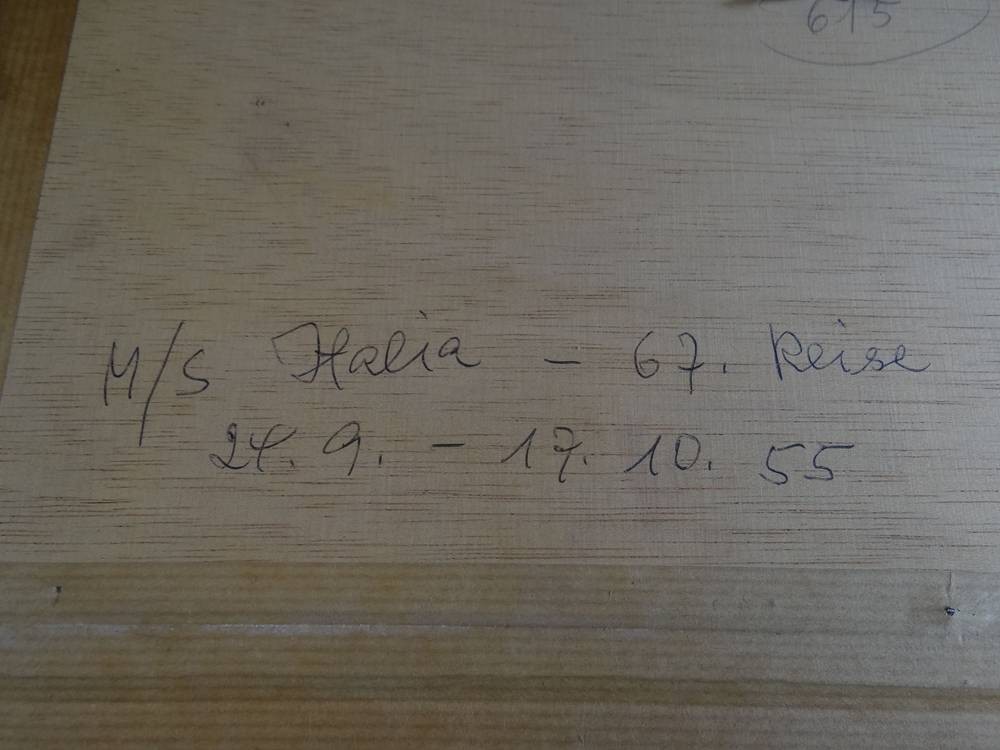 615
M/S Italia - 67. Reise
24. 9. - 17. 10. 55